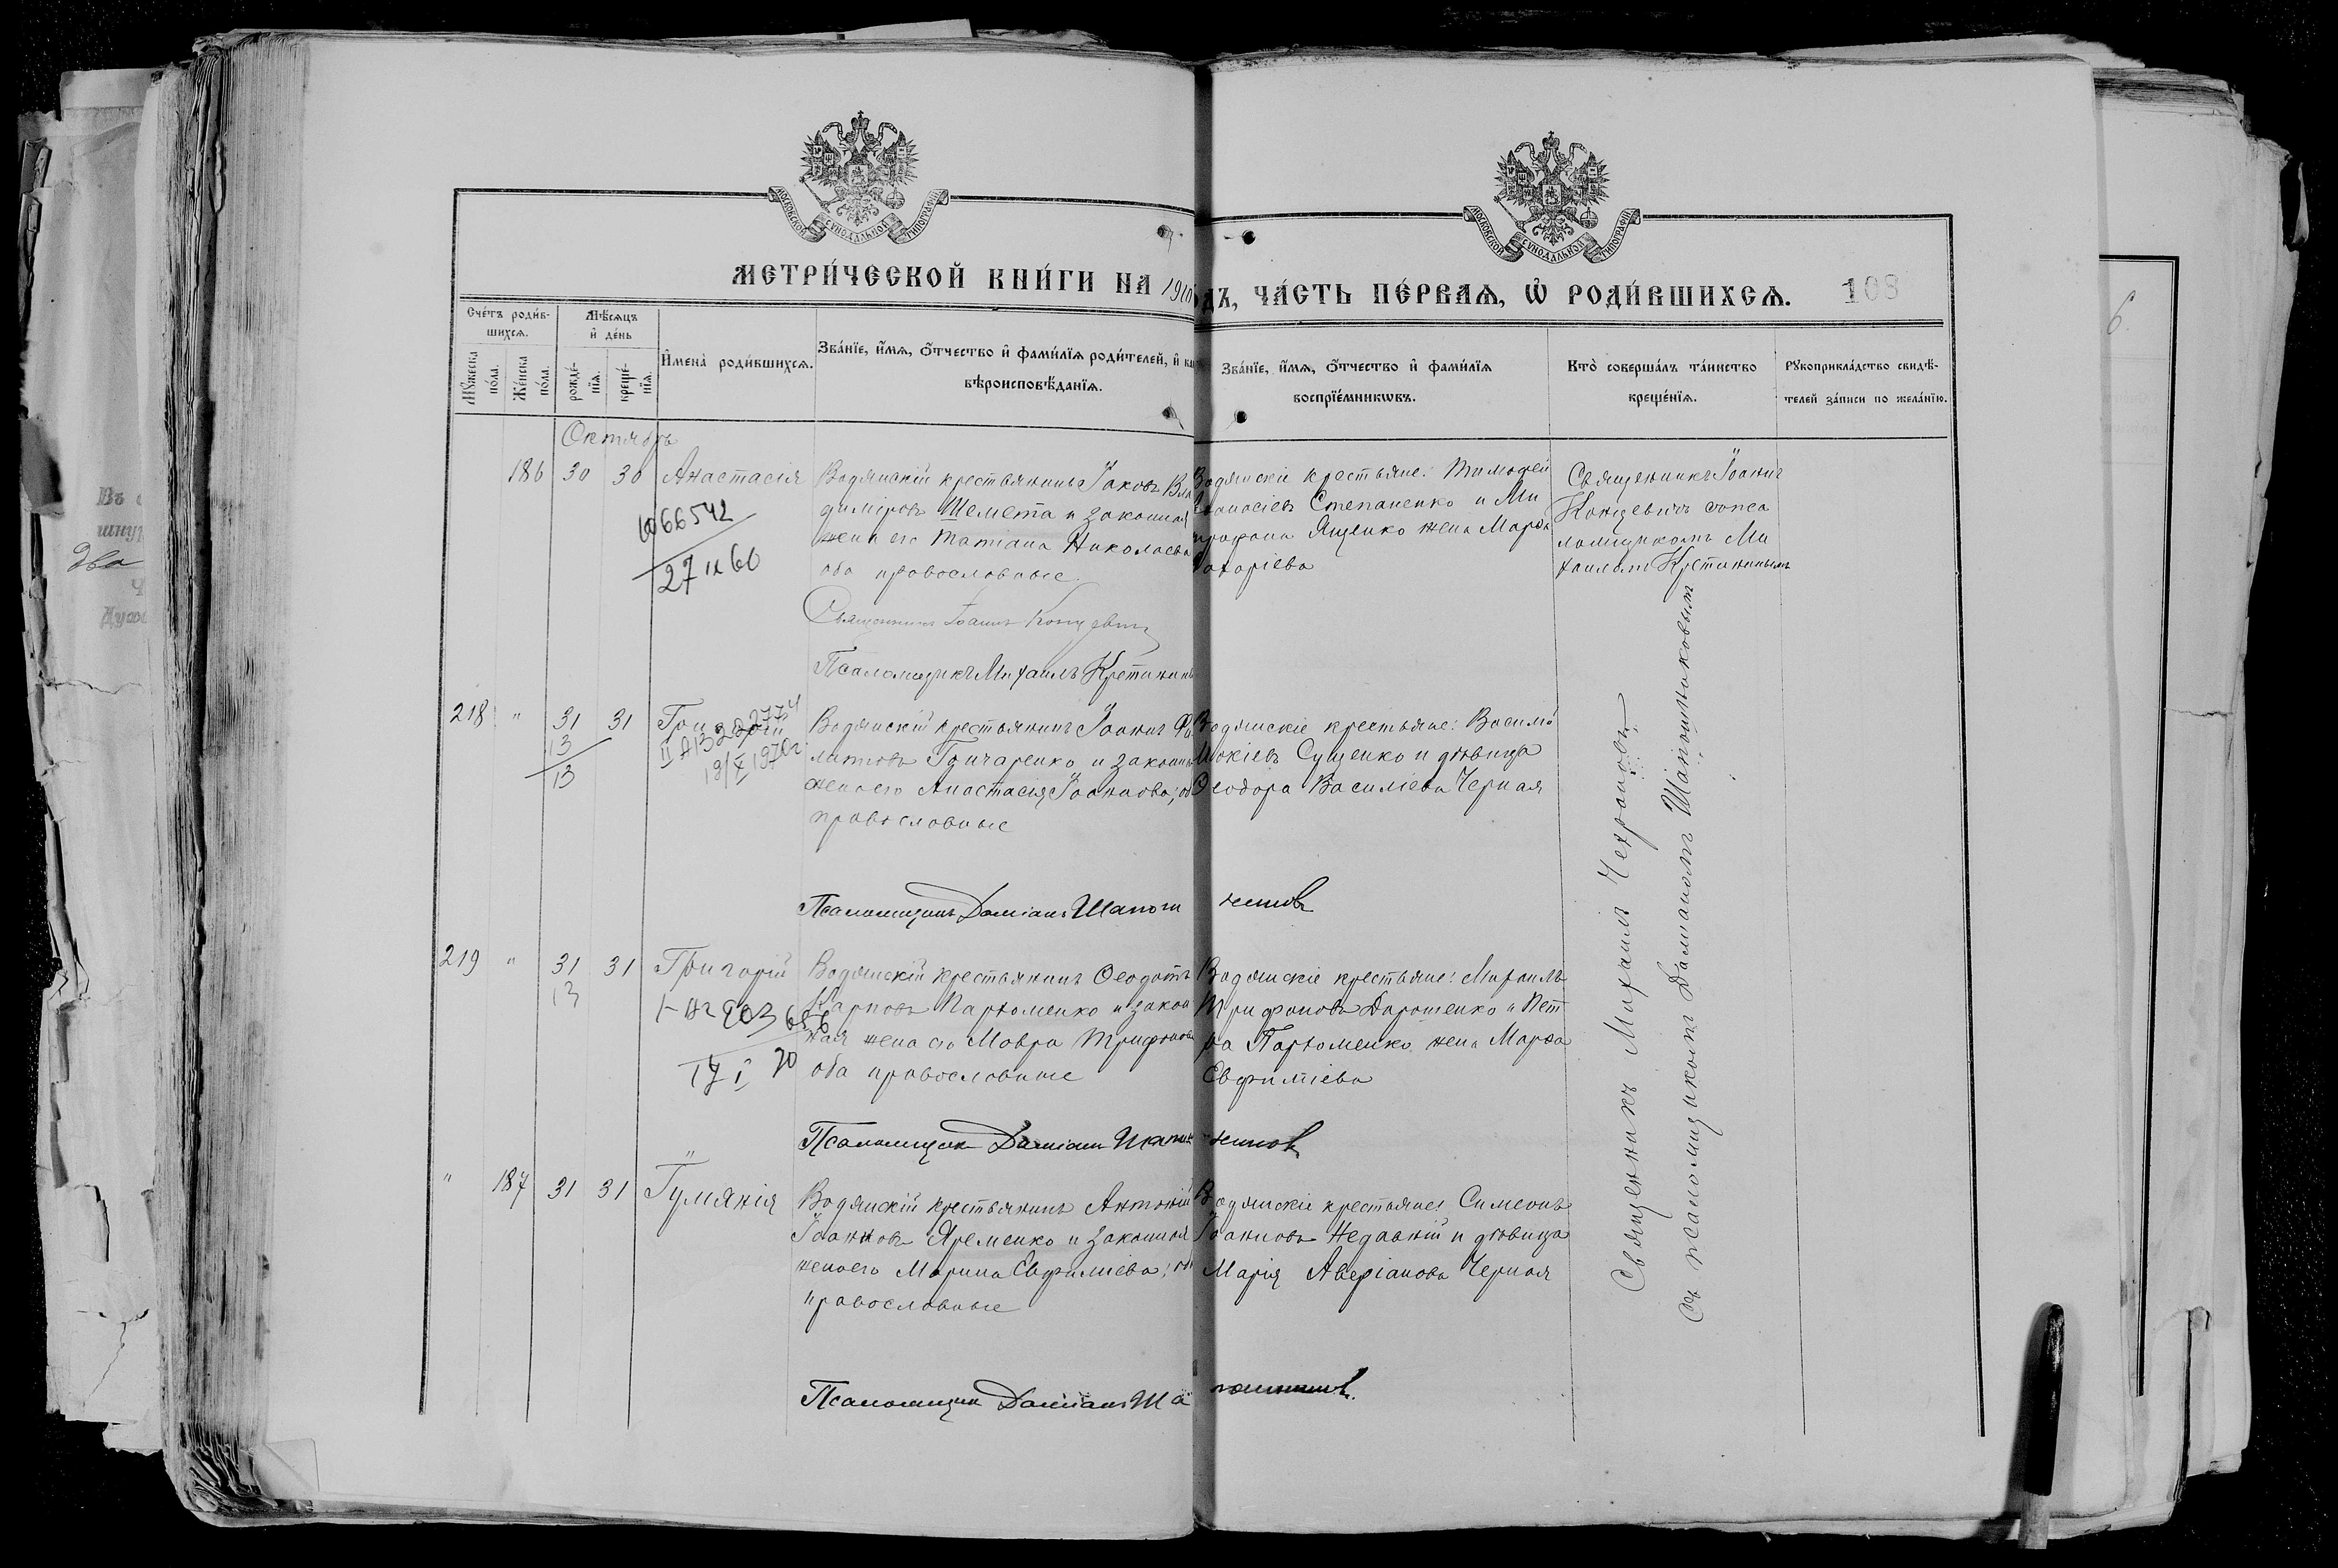 МОСКОВСКОЙ СѴНОДАЛЬНОЙ ТИПОГРАФІИ
МОСКОВСКОЙ СѴНОДАЛЬНОЙ ТИПОГРАФІИ
МЕТРИ́ЧЕСКОЙ КНИ́ГИ НА 1910
ДЪ, ЧА́СТЬ ПЕ́РВАѦ, Ѡ҆ РОДИ́ВШИХСѦ. 108
Сче́тъ роди́в-
шихсѧ.
Мꙋ́жеска
по́ла.
Же́нска
по́ла.
Мѣ́сѧцъ
и҆ де́нь
рожде́-
нїѧ.
креще́-
нїѧ.
И҆мена̀ роди́вшихсѧ.
Зва́нїе, и҆́мѧ, ѻ҆́тчество и҆ фами́лїѧ роди́телей, и҆
вѣроисповѣ́данїѧ.
Зва́нїе, и҆́мѧ, ѻ҆́тчество и҆ фами́лїѧ
воспрїе́мникѡвъ.
Кто̀ соверша́лъ та́инство
креще́нїѧ.
Рꙋкоприкла́дство свидѣ́-
телей за́писи по жела́нїю.
Октябрь
186 30 30 Анастасія
1066542
27 IX 60
Водянскій крестьянинъ Іаковъ Вла
диміровъ Шемета и законная
жена его Татіана Николаева
оба православные.
Священникъ Іоаннъ Концевичъ
Псаломщикъ Михаилъ Кретининъ
Водянскіе крестьяне: Тимофей
Афанасіевъ Степаненко и Ми
трофана Ященко жена Марфа
Захаріева
Священникъ Іоаннъ
Концевичъ съ пса
ломщикомъ Ми
хаиломъ Кретининымъ
218 " 31 31 Григорій
13
13
19/X 1970г
Водянскій крестьянинъ Іоаннъ Фи
липповъ Гончаренко и законная
жена его Анастасія Іоаннова; оба
православные
Псаломщикъ Даміанъ Шапошниковъ
Водянскіе крестьяне: Василій
Мокіевъ Сущенко и дѣвица
Ѳеодора Василіева Черная
219 " 31 31 Григорій
13
Водянскій крестьянинъ Ѳеодотъ
Карповъ Пархоменко и закон
ная жена его Мавра Трифонова
оба православные
Псаломщикъ Даміанъ Шапошниковъ
Водянскіе крестьяне: Михаилъ
Трифоновъ Дорошенко и Пет
ра Пархоменко жена Марфа
Евфиміева
" 187 31 31 Гуманія
Водянскій крестьянинъ Антоній
Іоанновъ Яременко и законная
жена его Марина Евфиміева; оба
православные
Псаломщикъ Даміанъ Шапошниковъ
Водянскіе крестьяне: Симеонъ
Іоанновъ Недавній и дѣвица
Марія Аверіанова Черная
Священникъ Михаилъ Чехрановъ
съ псаломщикомъ Даміаномъ Шапошниковымъ
Въ
шнур
два
6